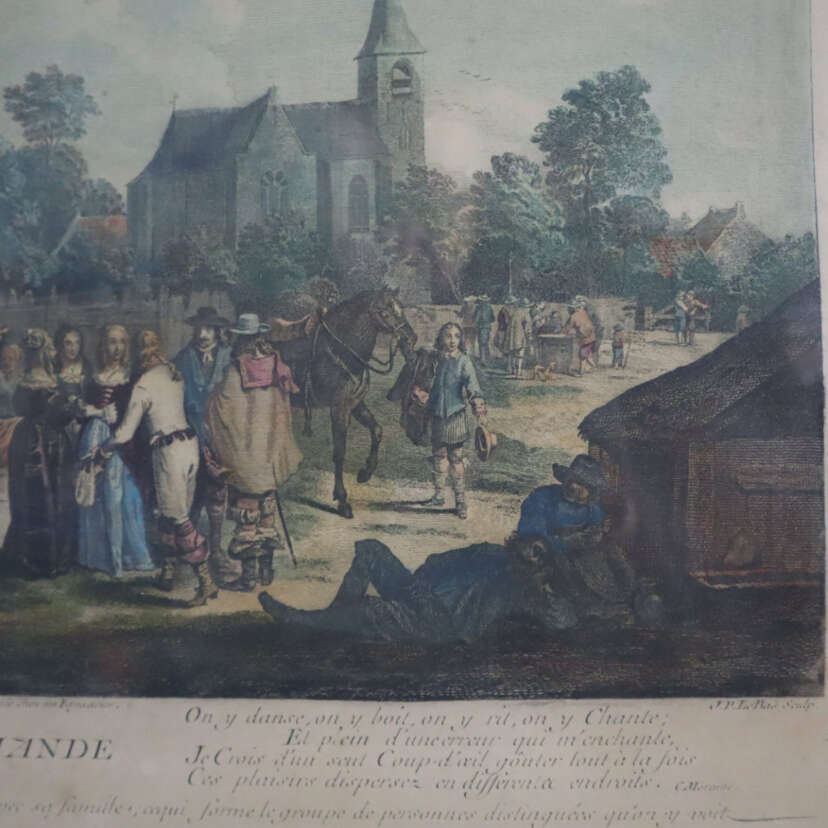 J. P. Le Bas Sculp.
On y danse, on y boit, on y rit, on y Chante;
Et plein d'une erreur qui m'enchante,
MANDE
Je Crois d'un seul Coup d'œil goûter tout à la fois
Ces plaisirs dispersez en différents endroits.
sa famille, ce qui forme le groupe de personnes distinguées qu'on y voit